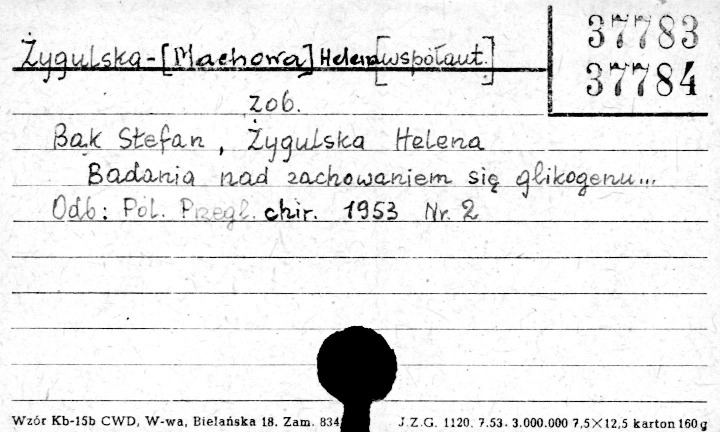 Żygulska-[Machowa] Helena [współaut.]
37783
37784
zob.
Bąk Stefan, Żygulska Helena
Badania nad zachowaniem się glikogenu...
Odb: Pol. Przegl. chir. 1953 Nr. 2
Wzór Kb-15b CWD, W-wa, Bielańska 18. Zam. 834 J.Z.G. 1120. 7.53. 3.000.000 7,5×12,5 karton 160 g